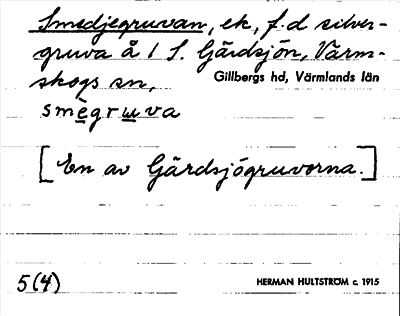 Smedjegruvan, ek, f.d silver-
gruva å 1 S. Gärdsjön, Värm-
skogs sn, Gillbergs hd, Värmlands län
smègruva
[En av Gärdsjögruvorna.]
5(4) HERMAN HULTSTRÖM c. 1915